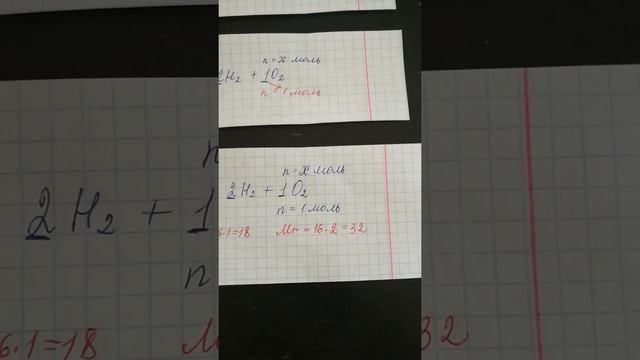 n = x моль
2H₂ + 1O₂
n = 1 моль
n = x моль
2H₂ + 1O₂
n = 1 моль
6·1=18 Mr = 16·2 = 32
2H₂ + 1
n
6·1=18
32